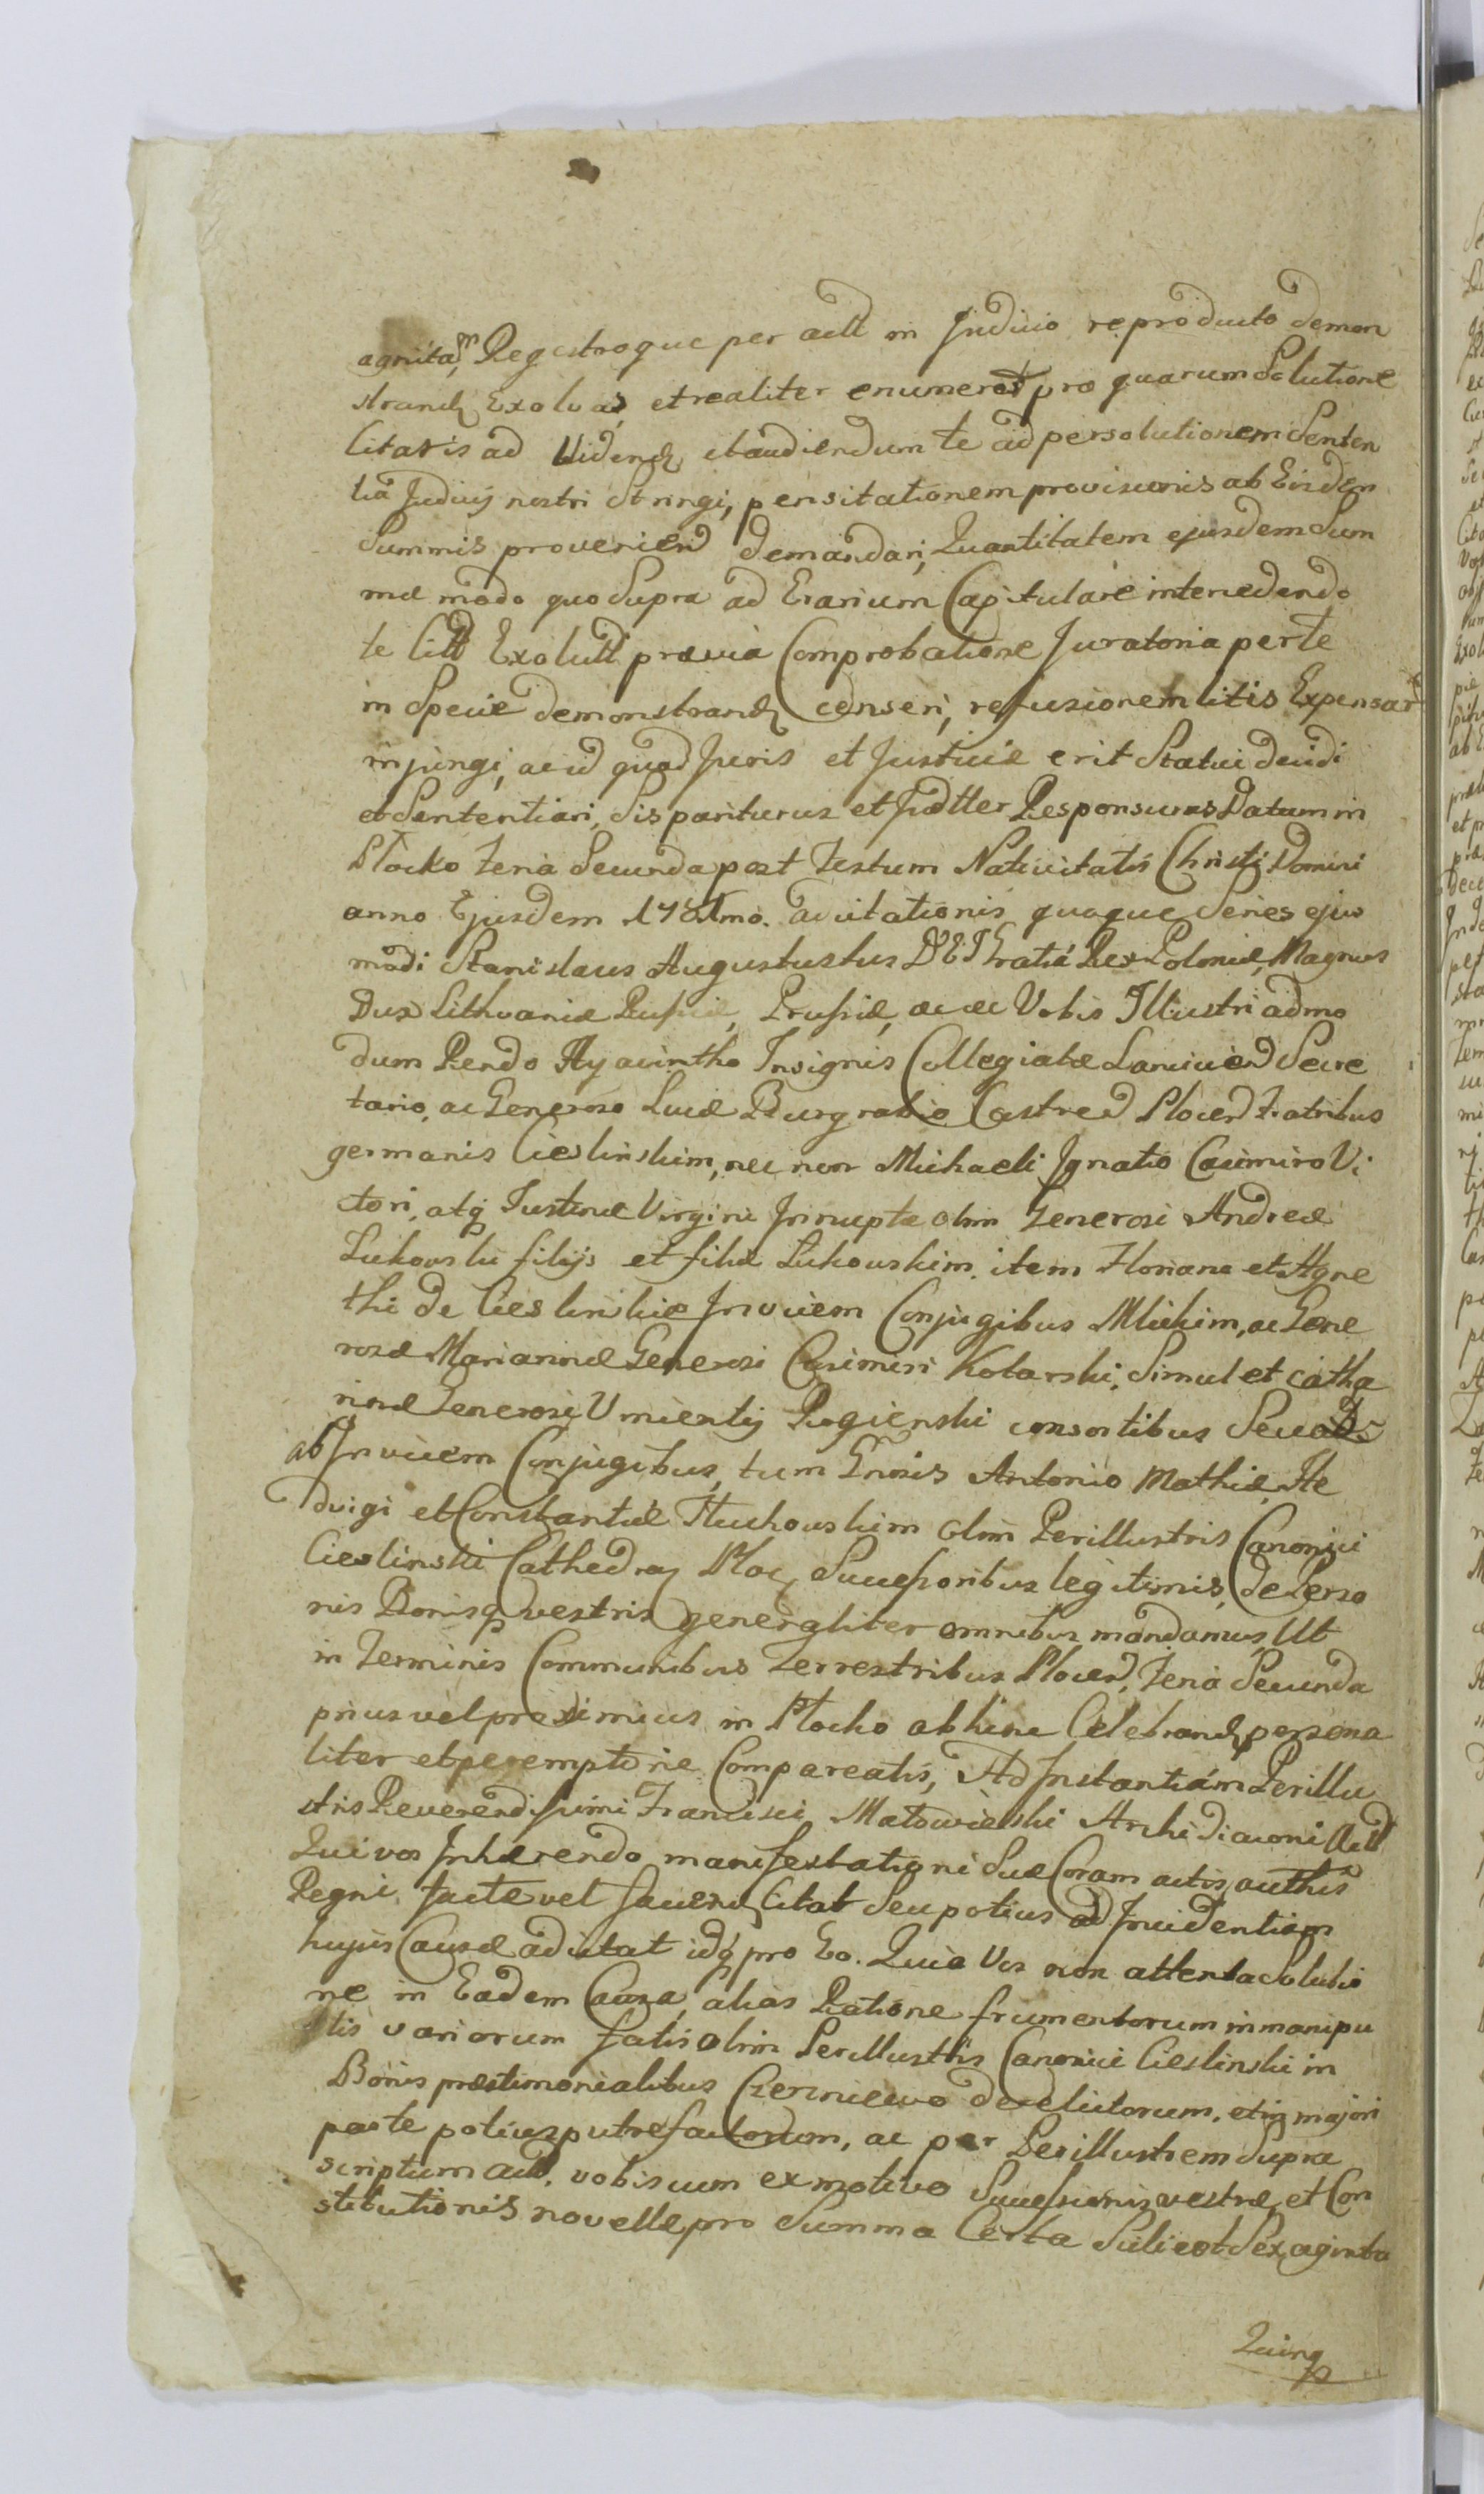 agnitam, Regestroque per actt in Judicio reproducto demon
strandz Exolvas, et realiter enumeres pro quarum Solutione
Citaris ad Videndz et audiendum te ad persolutionem Senten
tia Judicij nostri Stringi, pensitationem provisionis ab Eisdem
Summis proveniend demandari, Quantitatem ejusdem Sum
mæ modo quo Supra ad Erarium Capitulare intercedendo
te Citt Exolutt prævia Comprobatione Juratoria per te
in Specie demonstrandz censeri, refusionem litis Expensar
injungi, ac id quod Juris et Justiciæ erit Statui decidi
et Sententiari, Sis pariturus et Judtter Responsurus Datum in
Płocko Feria Secunda post Festum Nativitatis Christi Domini
anno Ejusdem 1781mo. ac citationis quoque Series ejus
modi Stanislaus Augustustus DEI Gratiá Rex Poloniæ, Magnus
Dux Lithvaniæ Russiæ, Prussiæ, ac ac Vobis Illustri admo
dum Rendo Hyacintho Insignis Collegiatæ Lanciciend Secre
tario, ac Generoso Lucæ Burgrabio Castred Plocend Fratribus
germanis Cieslinskim, nec non Michaeli Ignatio Casimiro Vi
ctori, atq Justinæ Virgini Innuptæ olim Generosi Andreæ
Lukowski filijs et filiæ Lukowskim. item Floriano et Agne
thi de Cieslinskie Invicem Conjugibus Mlickim, ac Gene
rosæ Mariannæ Generosi Casimiri Kolarski, Simul et Catha
rinæ Generosi Vincentij Rogienski consortibus Secus
ab Invicem Conjugibus, tum Gnosis Antonio Mathiæ, He
dvigi et Constantiæ Tluchowskim olim Perillustris Canonici
Cieslinski Cathedraz Ploc, Successoribus legitimis, de Perso
nis Bonisq vestris generaliter omnibus mandamus, Ut
in Terminis Communibus Terrestribus Plocend, Feria Secunda
prius vel proximius in Płocko abhinc Celebrandz persona
liter et peremptorie Compareatis, Ad Instantiam Perillu
stris Reverendissimi Francisci Matowieski Archidiaconi Actt
Qui vos Inhærendo manifestationi Suæ Coram actis authis
Regni factæ vel faciendz Citat Seu potius ad Incidentiam
hujus Causæ adcitat idq pro Eo. Quia Vos non attenta Solutio
ne in Eadem Causa, alias Ratione frumentorum in manipu
lis variorum satis olim Perillustris Canonici Cieslinski in
Bonis præstimonialibus Czerniewo derelictorum, et in majori
parte potius putrefactorum, ac per Perillustrem Supra
scriptum actt. vobiscum ex motivo Successionis vestræ, et Con
stitutionis novellæ pro Summa Certa Scilicet Sexaginta
Quinq